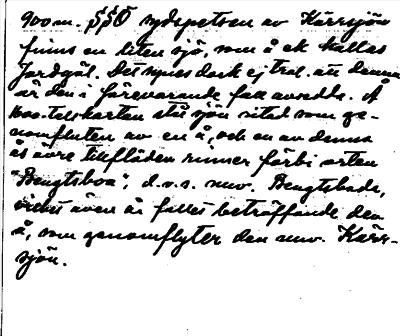 900 m. SSO sydspetsen av Kärrsjön
finns en liten sjö, som å ek kallas
Jordgöl. Det synes dock ej trol. att denna
är den i förevarande fall avsedda. Å
koo-tolkarten står sjön ritad som ge-
nomfluten av en å, och en av denna
ås övre tillflöden rinner förbi orten
"Bengtsboa", d.v.s. nuv. Bengtsboda,
vilket även är fallet beträffande den
å, som genomflyter den nuv. Kärr-
sjön.